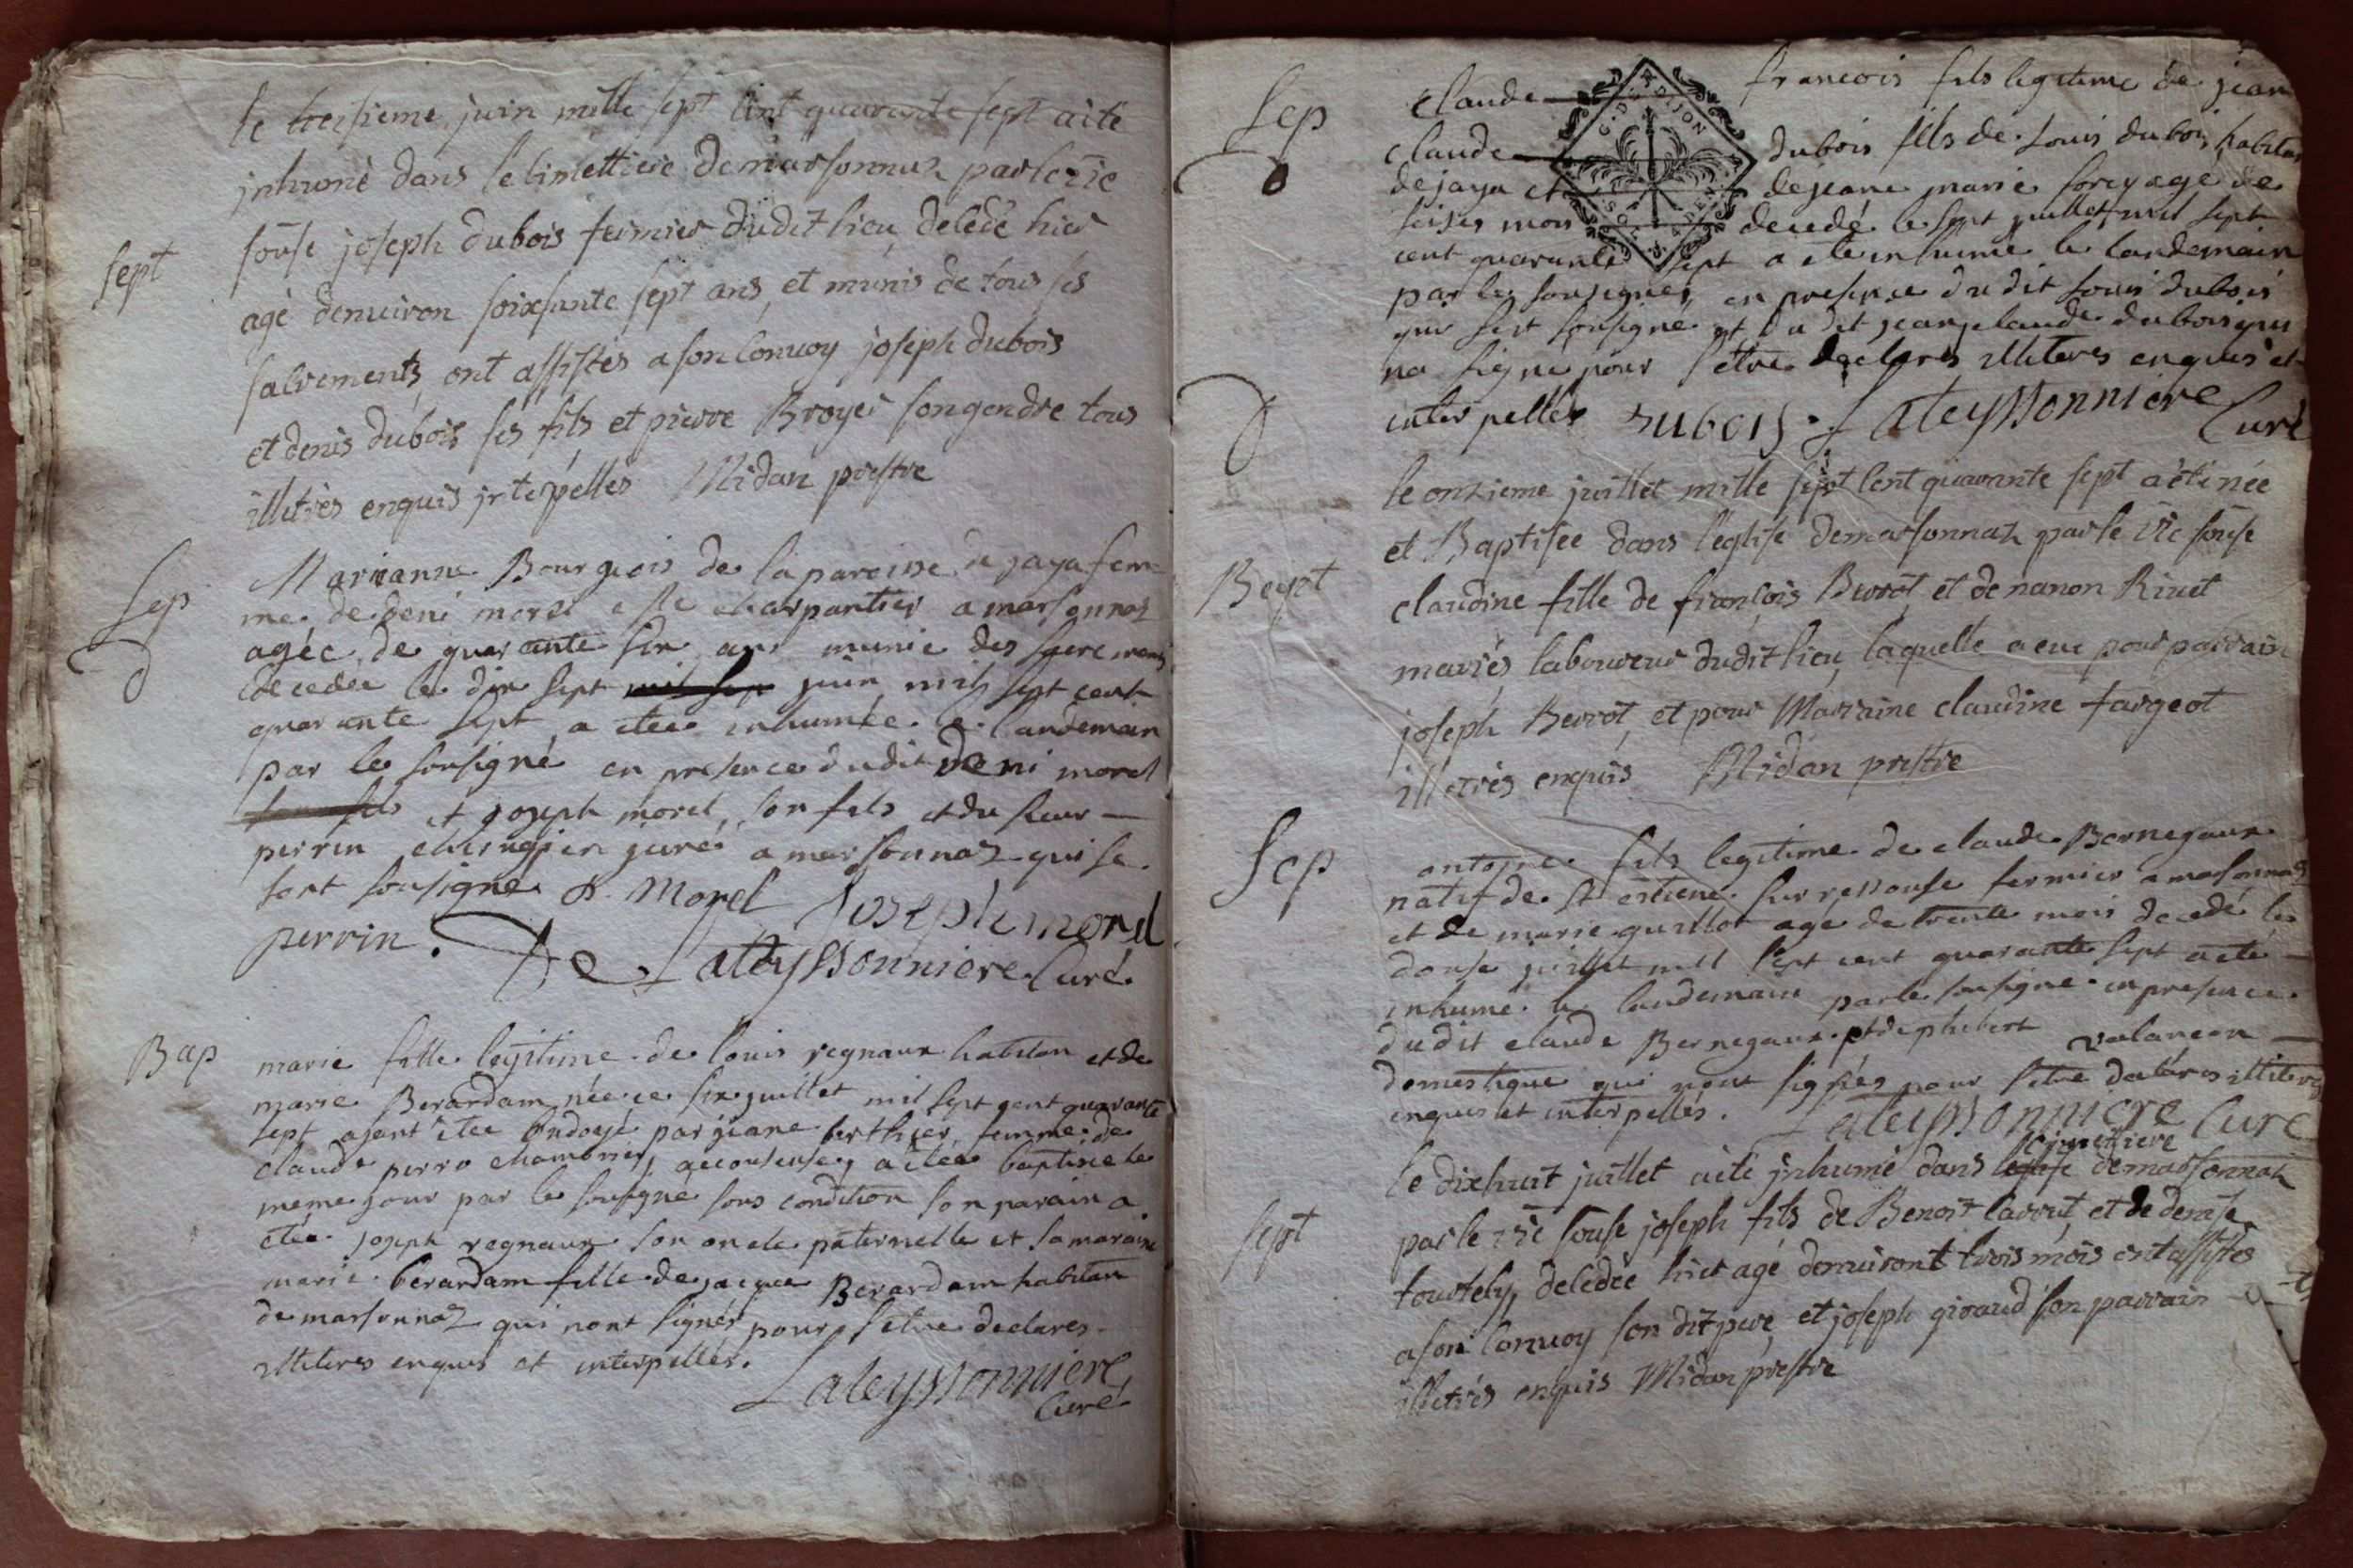 le treisieme juin mille sept cent quarante sept a été
inhumé dans le cimettiere de marsonnaz par le vic
souse joseph dubois fermier dudit lieu decedé hier
sept
agé denviron soixsante sept ans et munis de tous ses
sacrements, ont assistés a son convoy joseph dubois
et denis dubois ses fils et pierre Broyer son gendre tous
illitrés enquis jntepellés Midan prestre
Sep
Marianne Bourgeois de la paroisse de jaya fem
me de deni morel charpantier a marsonnaz
agée de quarante six ans munie des sacrements
decedee le dix sept juin mil sept cent
quarante sept a etee inhumée le landemain
par le sousigné en presence dudit deni morel
et joseph morel son fils et du sieur
perrin chirugien juré a marsonnaz qui se
sont sousigne D. Morel Joseph morel
perrin. De Lateyssonniere Curé
Bap
marie fille legitime de louis regnaux habitan et de
marie Berardam née ce six juillet mil sept cent quarante
sept ajant etee ondoyé par jeane berthier femme de
claude perro chambrier, accouseuse, a etee baptisée le
meme jour par le sousigné sous condition son parain a
etée joseph regnaux son oncle paternelle et sa maraine
marie berardam fille de jacque Berardam habitan
de marsonnaz qui nont signés pour setre declares
illiteres enquis et interpelles.
Lateyssonniere
Curé
Sep
claude francois fils legitime de jean
claude dubois fils de louis dubois habitan
de jaya et de jeane marie sorcy age de
seises mois decedé le sept juillet mil sept
cent quarante sept a ete inhumé le landemain
par les sousigné en presence du dit louis dubois
qui sest sousigné et du dit jean claude dubois qui
na signé pour setre declares illiteres enquis et
interpelles Dubois. Lateyssonniere
Curé
le onzieme juillet mille sept cent quarante sept a été née
et Baptisée dans l'eglise de marsonnaz par le vic souse
Bapt
claudine fille de françois Berrot et de nanon Rivet
mariés laboureur dudit lieu, laquelle a eue pour parrain
joseph Berrot, et pour Marraine claudine fargeot
illetrés enquis Midan prestre
Sep
antoine fils legitime de claude Bernegaux
natif de st estiene sur ressouse fermier a marsonnaz
et de marie guillot age de trente mois decedé le
douse juillet mil sept cent quarante sept a eté
inhumé le landemain par le sousigne en presence
dudit claude Bernegaux et de phibert valancon
domestique qui nont signés pour setre declares illiteres
enquis et interpellés. Lateyssonniere Curé
le dixhuit juillet a été jnhumé dans le cimettiere de marsonnaz
sept
par le vic souse joseph fils de Benoit carrut et de denise
tourtely, decedée hier agé denviront trois mois ont assistes
a son convoy son dit pere et joseph giraud son parrain
illetrés enquis Midan prestre